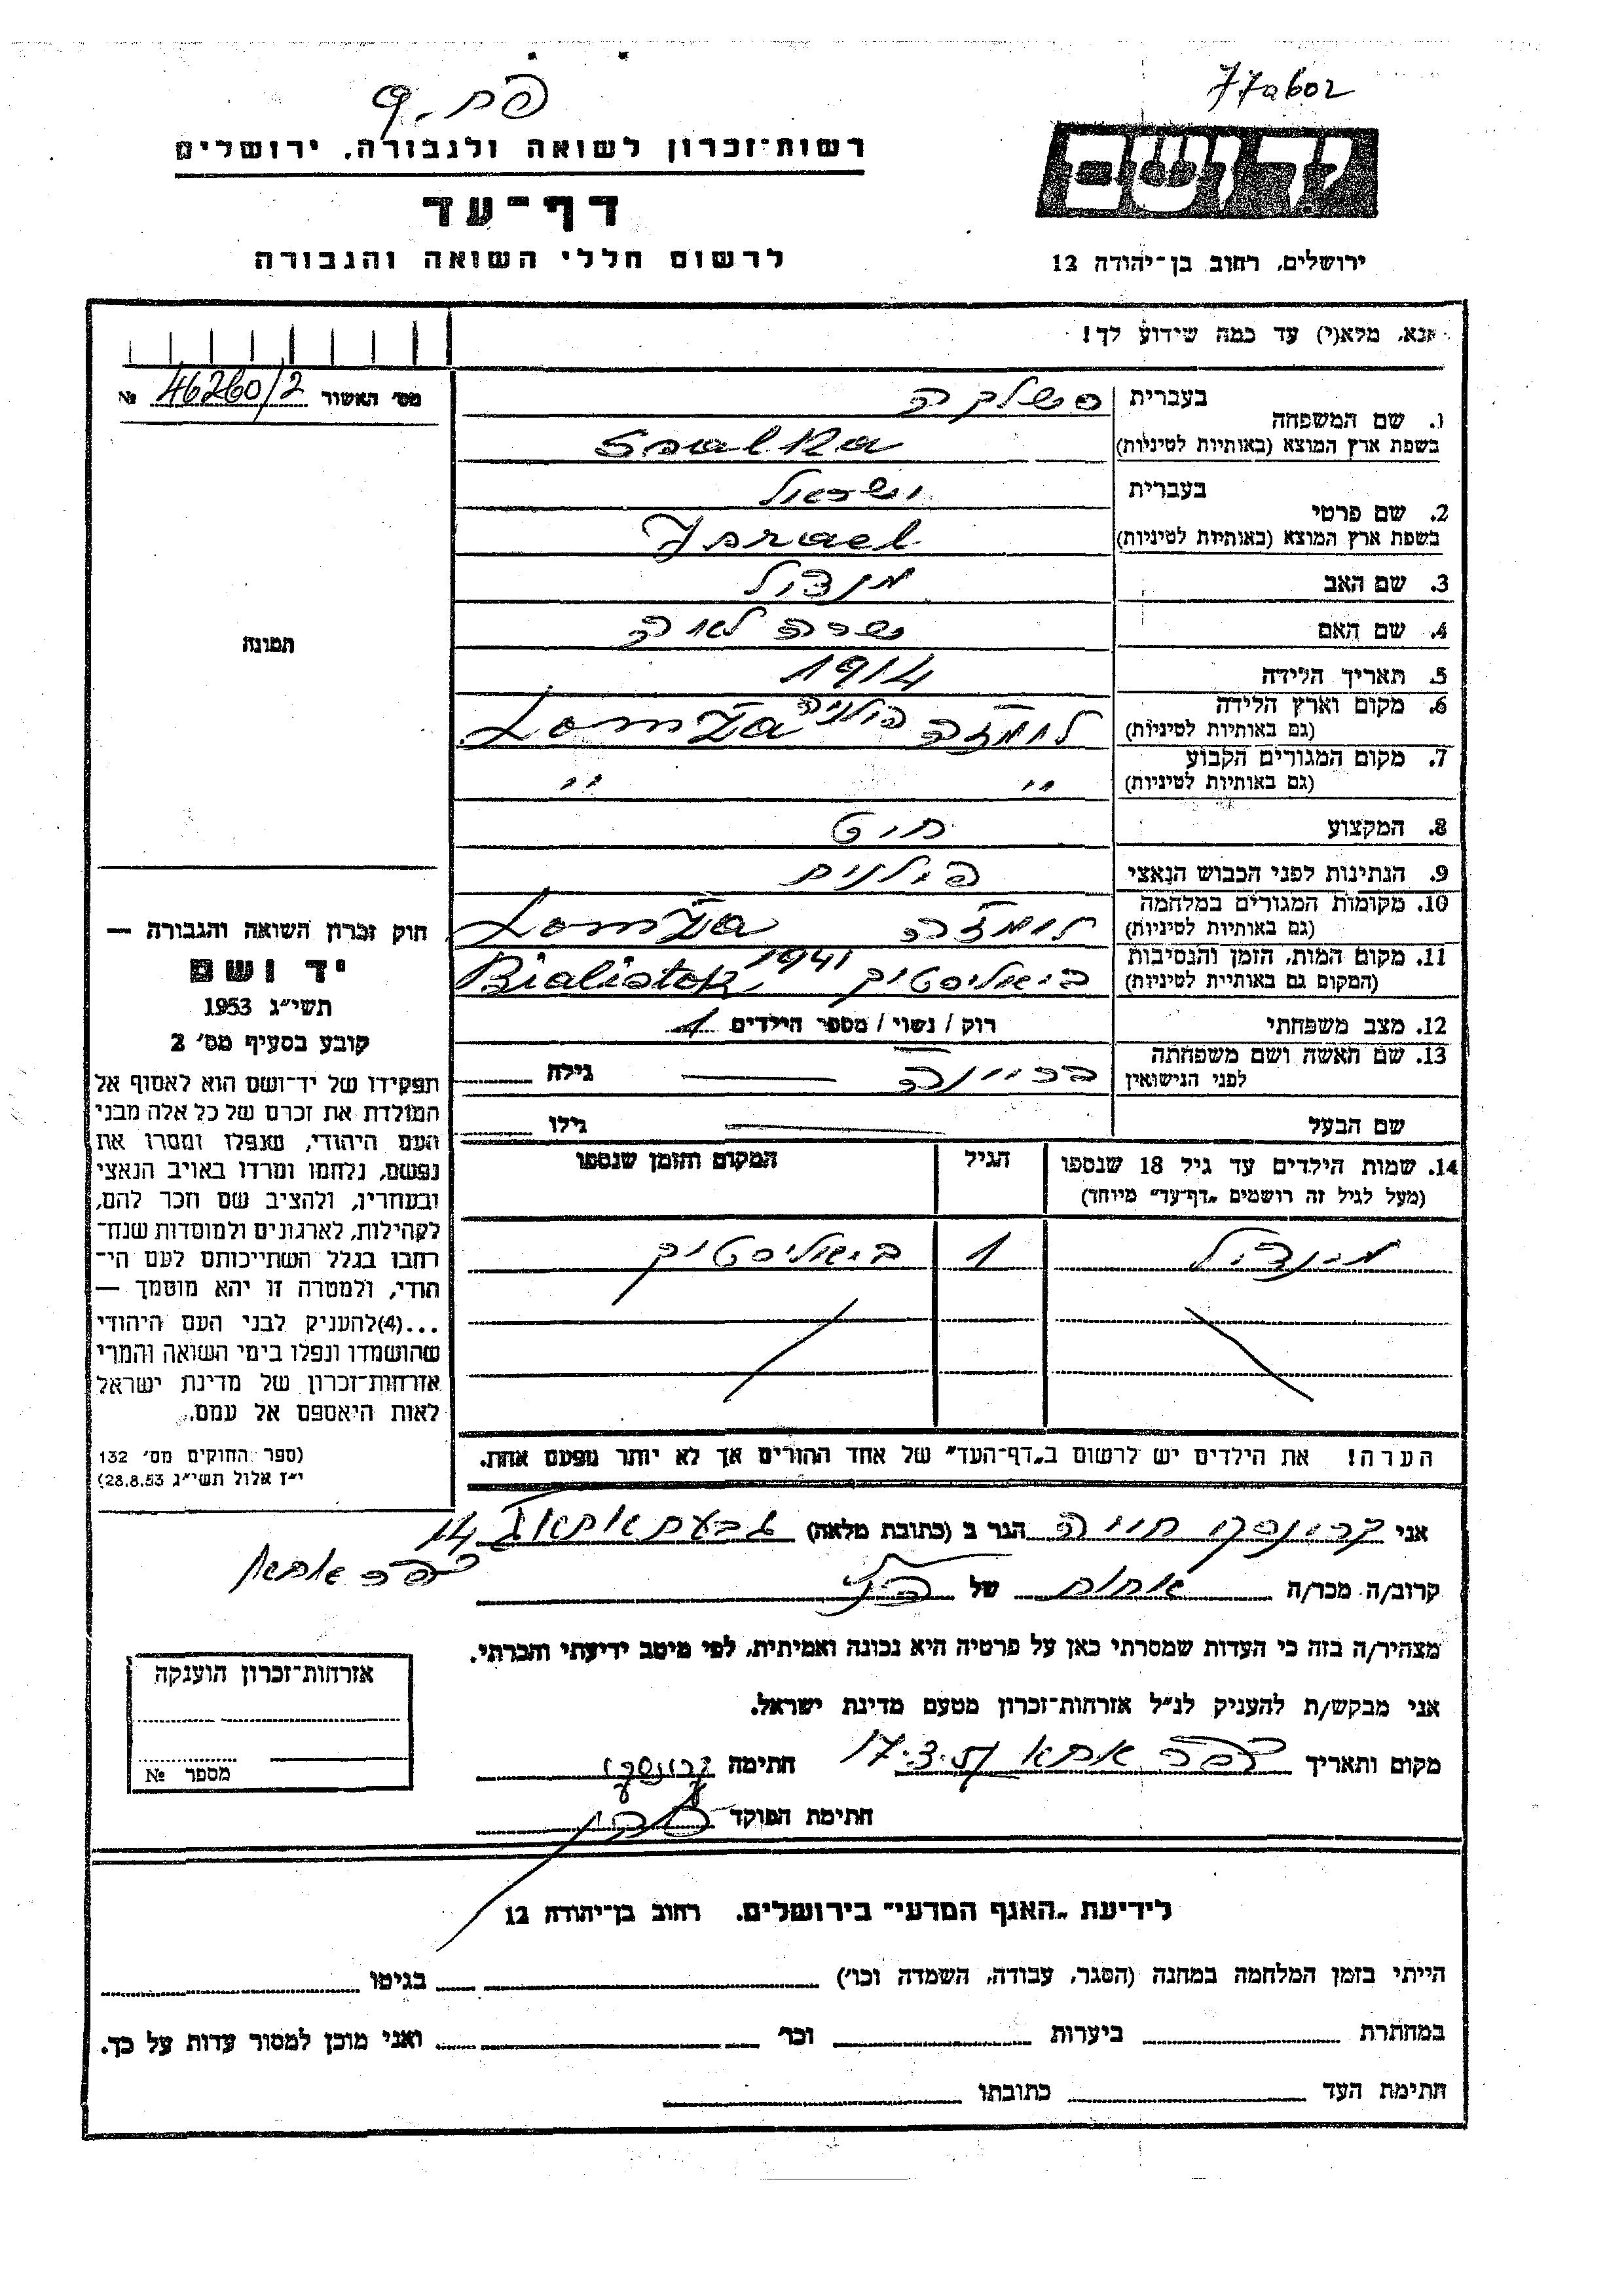 פת. ק
77a602
רשות־זכרון לשואה ולגבורה, ירושלים
ידושם
דף־עד
לרשום חללי השואה והגבורה
ירושלים, רחוב בן־יהודה 12
אנא, מלא(י) עד כמה שידוע לך!
מס׳ האשור 46260/2 №
1. שם המשפחה
בעברית סשלקה
בשפת ארץ המוצא (באותיות לטיניות)
2. שם פרטי
בעברית ישראל
בשפת ארץ המוצא (באותיות לטיניות) Israel
3. שם האב מנדול
4. שם האם שרה לאה
5. תאריך הלידה 1914
6. מקום וארץ הלידה
(גם באותיות לטיניות) לומזה פולניה Lomża
7. מקום המגורים הקבוע
(גם באותיות לטיניות) " "
8. המקצוע חיט
9. הנתינות לפני הכבוש הנאצי פולנית
10. מקומות המגורים במלחמה
(גם באותיות לטיניות) לומזה Lomża
11. מקום המות, הזמן והנסיבות
(המקום גם באותיות לטיניות) ביאליסטוק 1941 Bialistok
12. מצב משפחתי רוק / נשוי / מספר הילדים 1
13. שם האשה ושם משפחתה
לפני הנישואין גילה
שם הבעל גילו
14. שמות הילדים עד גיל 18 שנספו
(מעל לגיל זה רושמים „דף־עד" מיוחד)
הגיל
המקום והזמן שנספו
מינדול 1 ביאליסטוק
הערה! את הילדים יש לרשום ב„דף־העד" של אחד ההורים אך לא יותר מפעם אחת.
תמונה
חוק זכרון השואה והגבורה —
יד ושם
תשי״ג 1953
קובע בסעיף מס׳ 2
תפקידו של יד־ושם הוא לאסוף אל
המולדת את זכרם של כל אלה מבני
העם היהודי, שנפלו ומסרו את
נפשם, נלחמו ומרדו באויב הנאצי
ובעוזריו, ולהציב שם וזכר להם,
לקהילות, לארגונים ולמוסדות שנח־
רחבו בגלל השתייכותם לעם הי־
הודי, ולמטרה זו יהא מוסמך —
...(4)להעניק לבני העם היהודי
שהושמדו ונפלו בימי השואה והמרי
אזרחות־זכרון של מדינת ישראל
לאות היאספם אל עמם.
(ספר החוקים מס׳ 132
י״ז אלול תשי״ג 28.8.53)
אני קרינסקי חיה הגר ב (כתובת מלאה) גבעת אתא ג 14
כפר אתא
קרוב/ה מכר/ה אחות של הנ״ל
מצהיר/ה בזה כי העדות שמסרתי כאן על פרטיה היא נכונה ואמיתית, לפי מיטב ידיעתי והכרתי.
אני מבקש/ת להעניק לנ״ל אזרחות־זכרון מטעם מדינת ישראל.
מקום ותאריך כפר אתא 17.3.57 חתימה
חתימת הפוקד
אזרחות־זכרון הוענקה
מספר №
לידיעת „האגף המדעי" בירושלים, רחוב בן־יהודה 12
הייתי בזמן המלחמה במחנה (הסגר, עבודה, השמדה וכו׳) בגיטו
במחתרת ביערות וכו׳ ואני מוכן למסור עדות על כך.
חתימת העד כתובתו